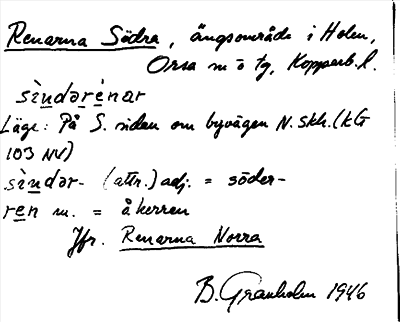 Renarna Södra, ängsområde i Holen,
Orsa sn o tg, Kopparb. l.
sìndərénar
Läge: På S. sidan om byvägen N. skh. (kG
103 NV)
sìndər- (attr.) adj. = söder-
ren m. = åkerren
Jfr. Renarna Norra
B. Granholm 1946